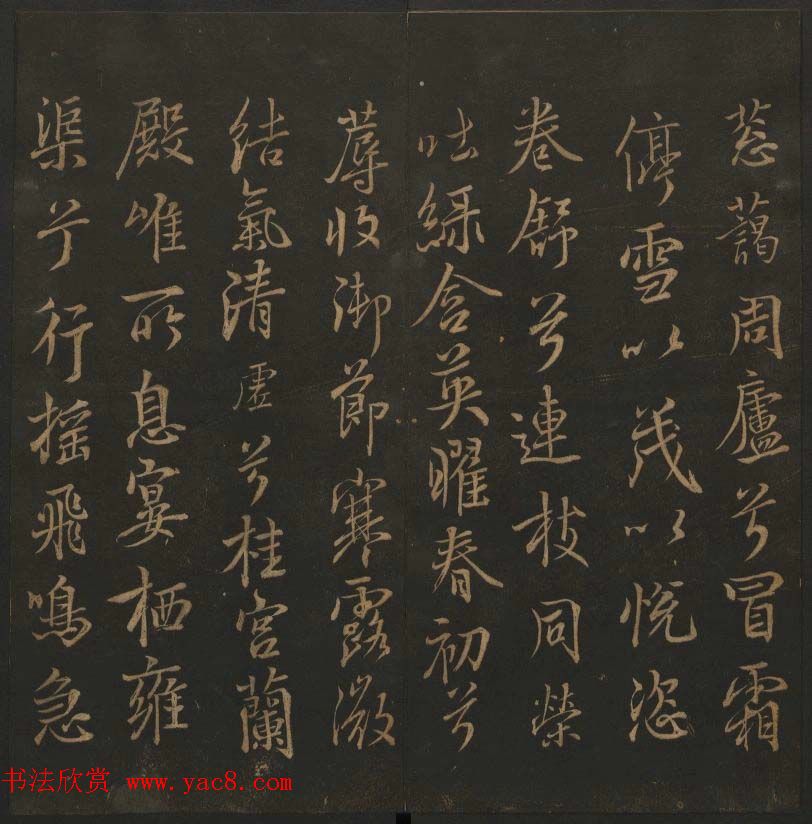 葱藹周廬兮冒霜
停雪以茂以悦恣
卷舒兮連枝同榮
吐緑含英曜春初兮
蓐收御節寒露微
結氣清虚兮桂宮蘭
殿唯所息宴栖雍
渠兮行摇飛鳴急
书法欣赏 www.yac8.com